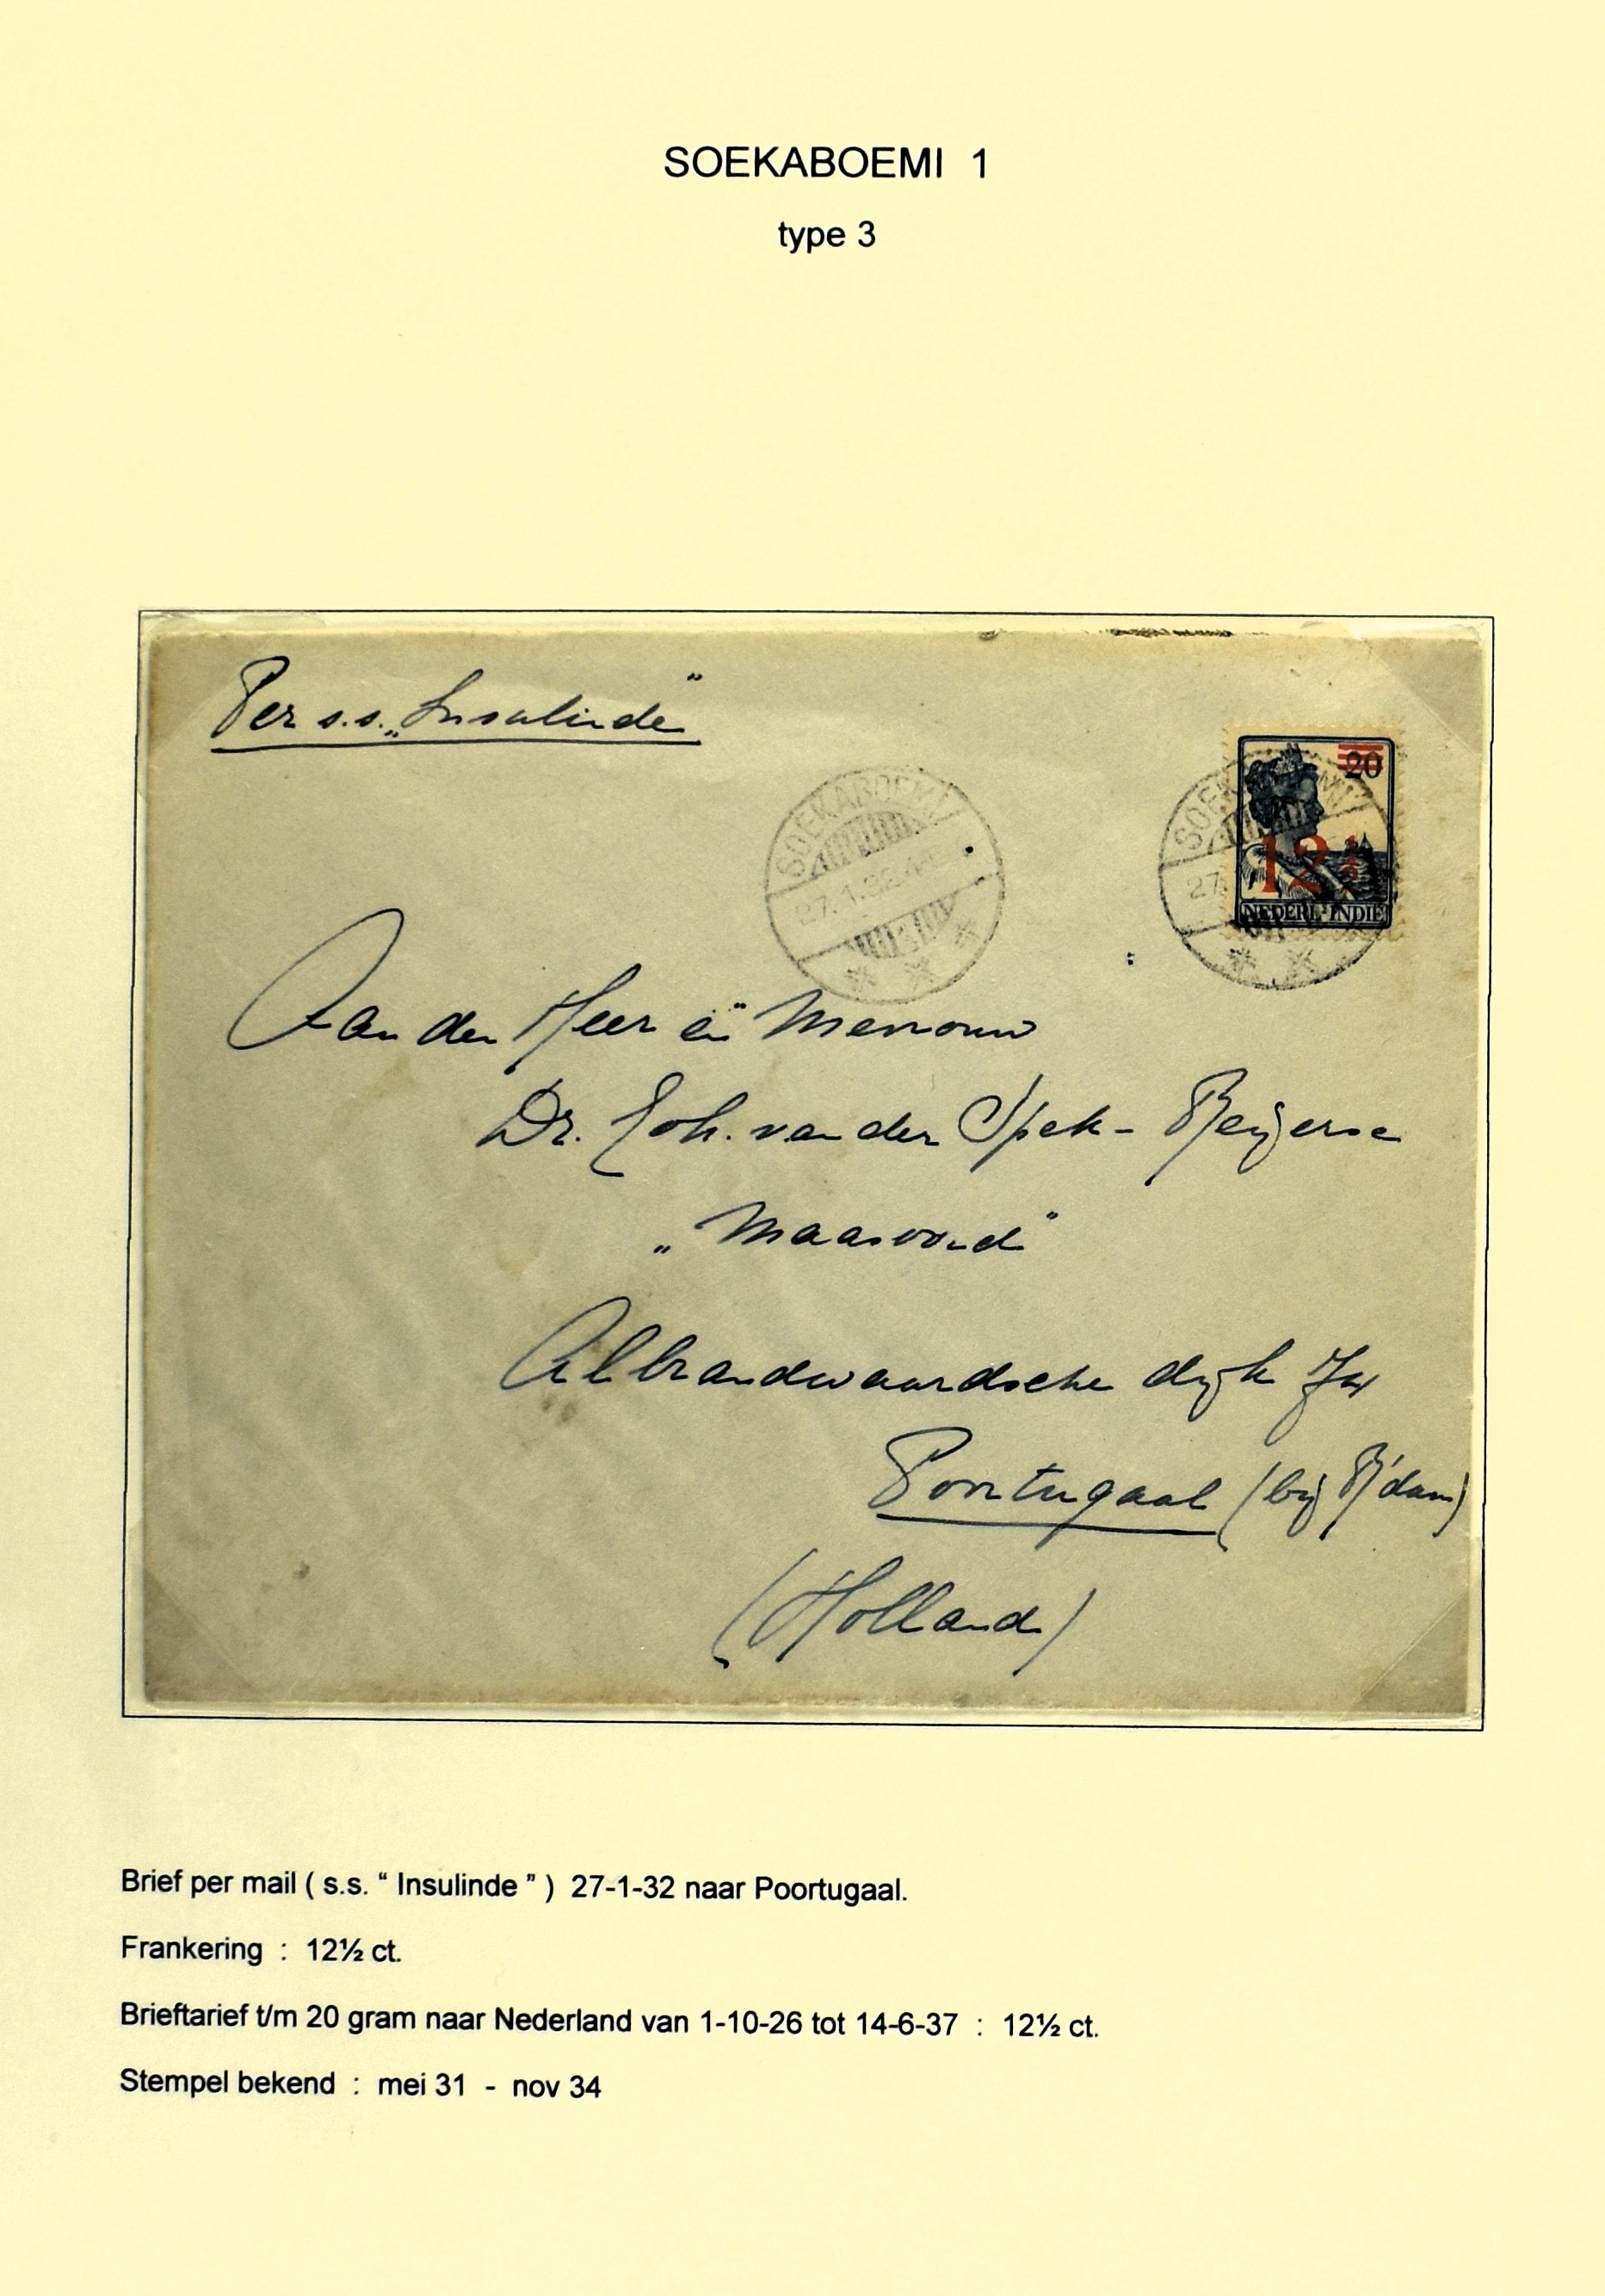 SOEKABOEMI 1
type 3
Per s.s. „Insulinde"
SOEKABOEMI
27.1.32.4-
20
12½
NEDERL-INDIE
SOEK
27.
Aan den Heer en Mevrouw
Dr. Joh. van der Spek - Beijerse
„Maasoord"
Albrandwaardsche dijk 74
Poortugaal (bij R'dam)
(Holland)
Brief per mail ( s.s. “ Insulinde ” ) 27-1-32 naar Poortugaal.
Frankering : 12½ ct.
Brieftarief t/m 20 gram naar Nederland van 1-10-26 tot 14-6-37 : 12½ ct.
Stempel bekend : mei 31 - nov 34